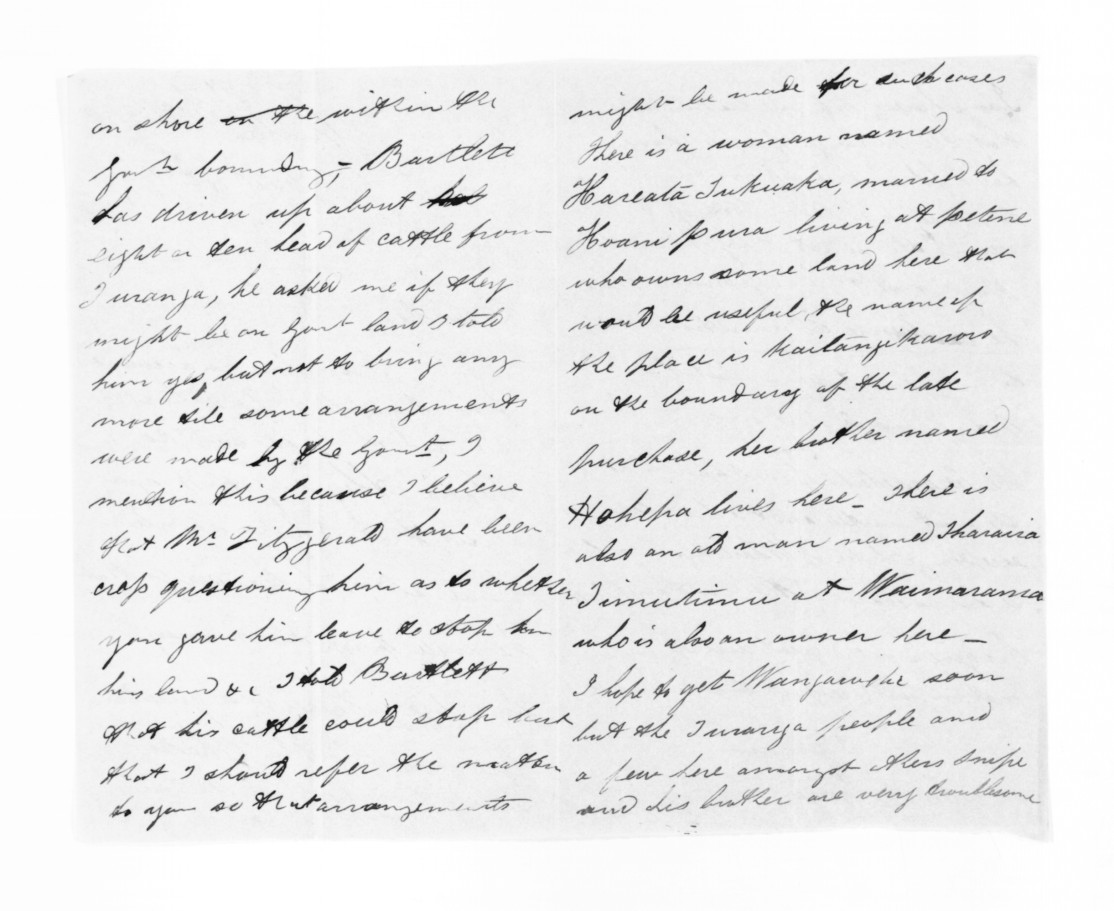 on shore on the within the
Govt boundary, – Bartlett
has driven up about but
eight or ten head of cattle from
Turanga, he asked me if they
might be on Govt land I told
him yes, but not to bring any
more till some arrangements
were made by the Govt, I
mention this because I believe
that Mr Fitzgerald have been
cross questioning him as to whether
you gave him leave to stop on
his land &c I told Bartlett
that his cattle could stop but
that I should refer the matter
to you so that arrangements
might be made for such cases
There is a woman named
Hareata Tukuaka, married to
Hoani pura living at petane
who owns some land here that
would be useful, the name of
the place is Kaitangikaroro
on the boundary of the late
purchase, her brother named
Hohepa lives here – There is
also an old man named Tharaira
Timutimu at Waimarama
who is also an owner here –
I hope to get soon
but the Turanga people and
a few here amongst others Snipe
and his brother are very troublesome